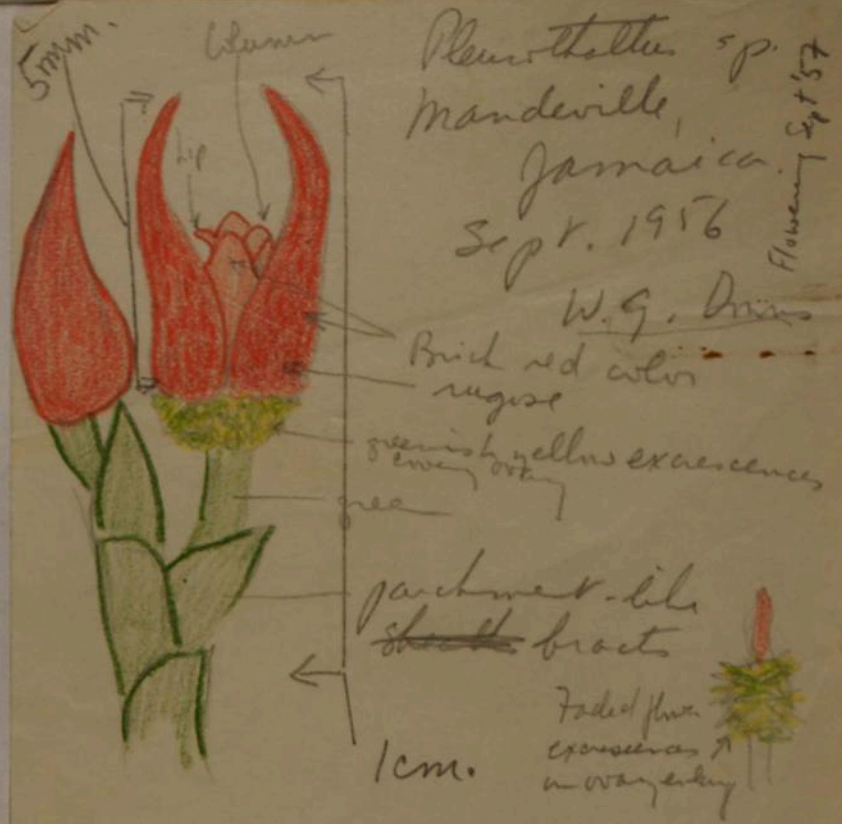 5mm.
Column
Lip
Pleurothallus sp.
Mandeville,
Jamaica.
Sept. 1956
Flowering Sept '57
W.G.
Brick red color
rugose
greenish yellow excrescences
ovary
green
parchment-like
sheaths bracts
1cm.
Faded flower
excrescences
on ovary